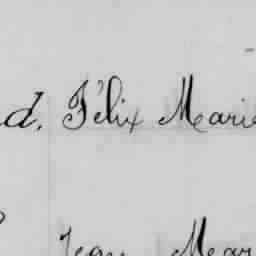 d, Félix Marie
Jean Mar